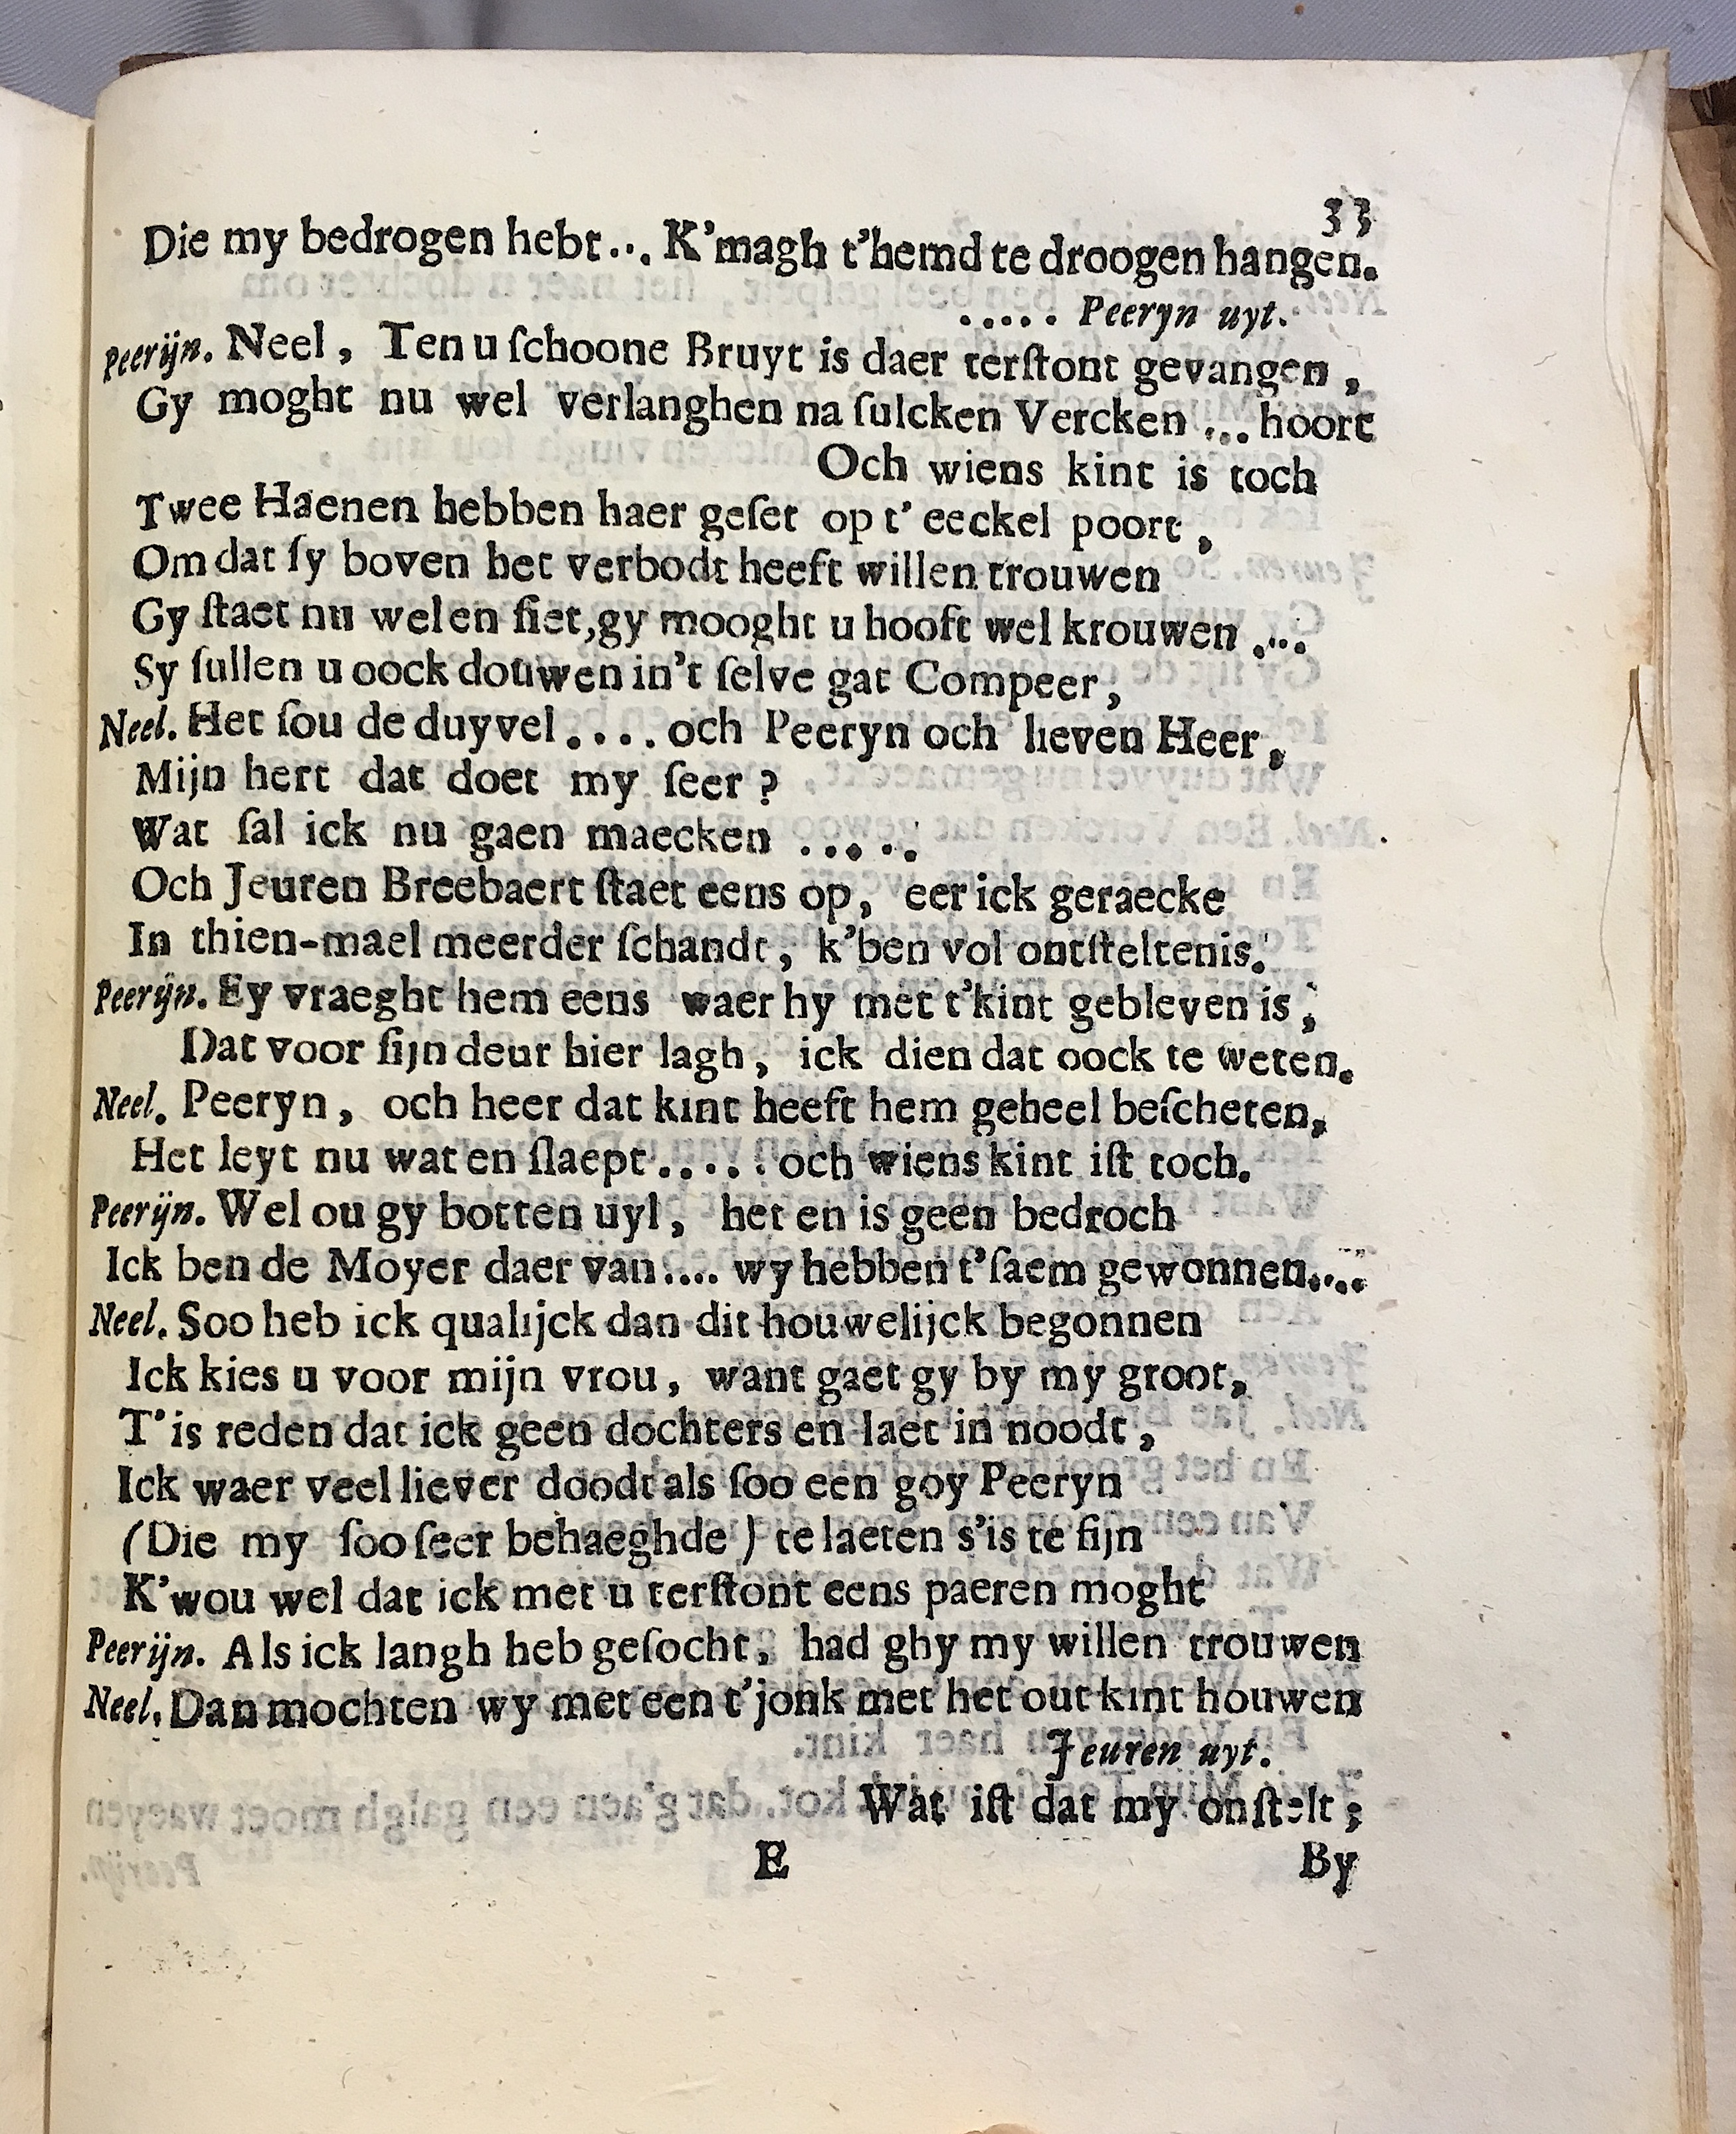 33
Die my bedrogen hebt... K'magh t'hemd te droogen hangen.
..... Peeryn uyt.
Peerijn. Neel, Ten u ſchoone Bruyt is daer terſtont gevangen,
Gy moght nu wel verlanghen na ſulcken Vercken ... hoort
Och wiens kint is toch
Twee Haenen hebben haer geſet op t' eeckel poort,
Om dat ſy boven het verbodt heeft willen trouwen
Gy ſtaet nu wel en ſiet, gy mooght u hooft wel krouwen ....
Sy ſullen u oock douwen in't ſelve gat Compeer,
Neel. Het ſou de duyvel .... och Peeryn och lieven Heer,
Mijn hert dat doet my ſeer?
Wat ſal ick nu gaen maecken .....
Och Jeuren Breebaert ſtaet eens op, eer ick geraecke
In thien-mael meerder ſchandt, k'ben vol ontſteltenis.
Peerijn. Ey vraeght hem eens waer hy met t'kint gebleven is,
Dat voor ſijn deur hier lagh, ick dien dat oock te weten.
Neel. Peeryn, och heer dat kint heeft hem geheel beſcheten,
Het leyt nu wat en ſlaept ..... och wiens kint iſt toch.
Peerijn. Wel ou gy botten uyl, het en is geen bedroch
Ick ben de Moyer daer van .... wy hebben t'ſaem gewonnen....
Neel. Soo heb ick qualijck dan dit houwelijck begonnen
Ick kies u voor mijn vrou, want gaet gy by my groot,
T'is reden dat ick geen dochters en laet in noodt,
Ick waer veel liever doodt als ſoo een goy Peeryn
(Die my ſoo ſeer behaeghde) te laeten s'is te ſijn
K'wou wel dat ick met u terſtont eens paeren moght
Peerijn. Als ick langh heb geſocht, had ghy my willen trouwen
Neel. Dan mochten wy met een t'jonk met het out kint houwen
Jeuren uyt.
Wat iſt dat my onſtelt;
E By